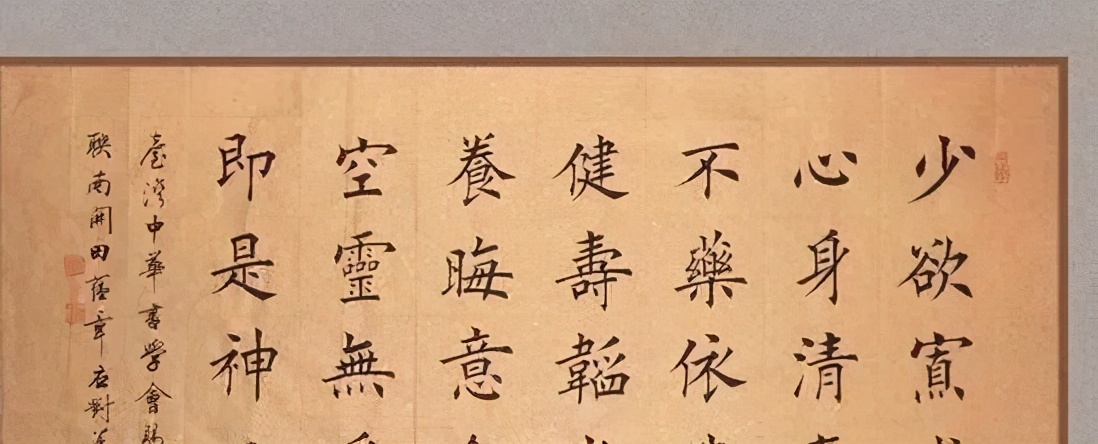 少欲寡
心身清
不藥依
健壽韜
養晦意
空靈無
即是神
臺灣中華書學會
聯南開田舊章右對